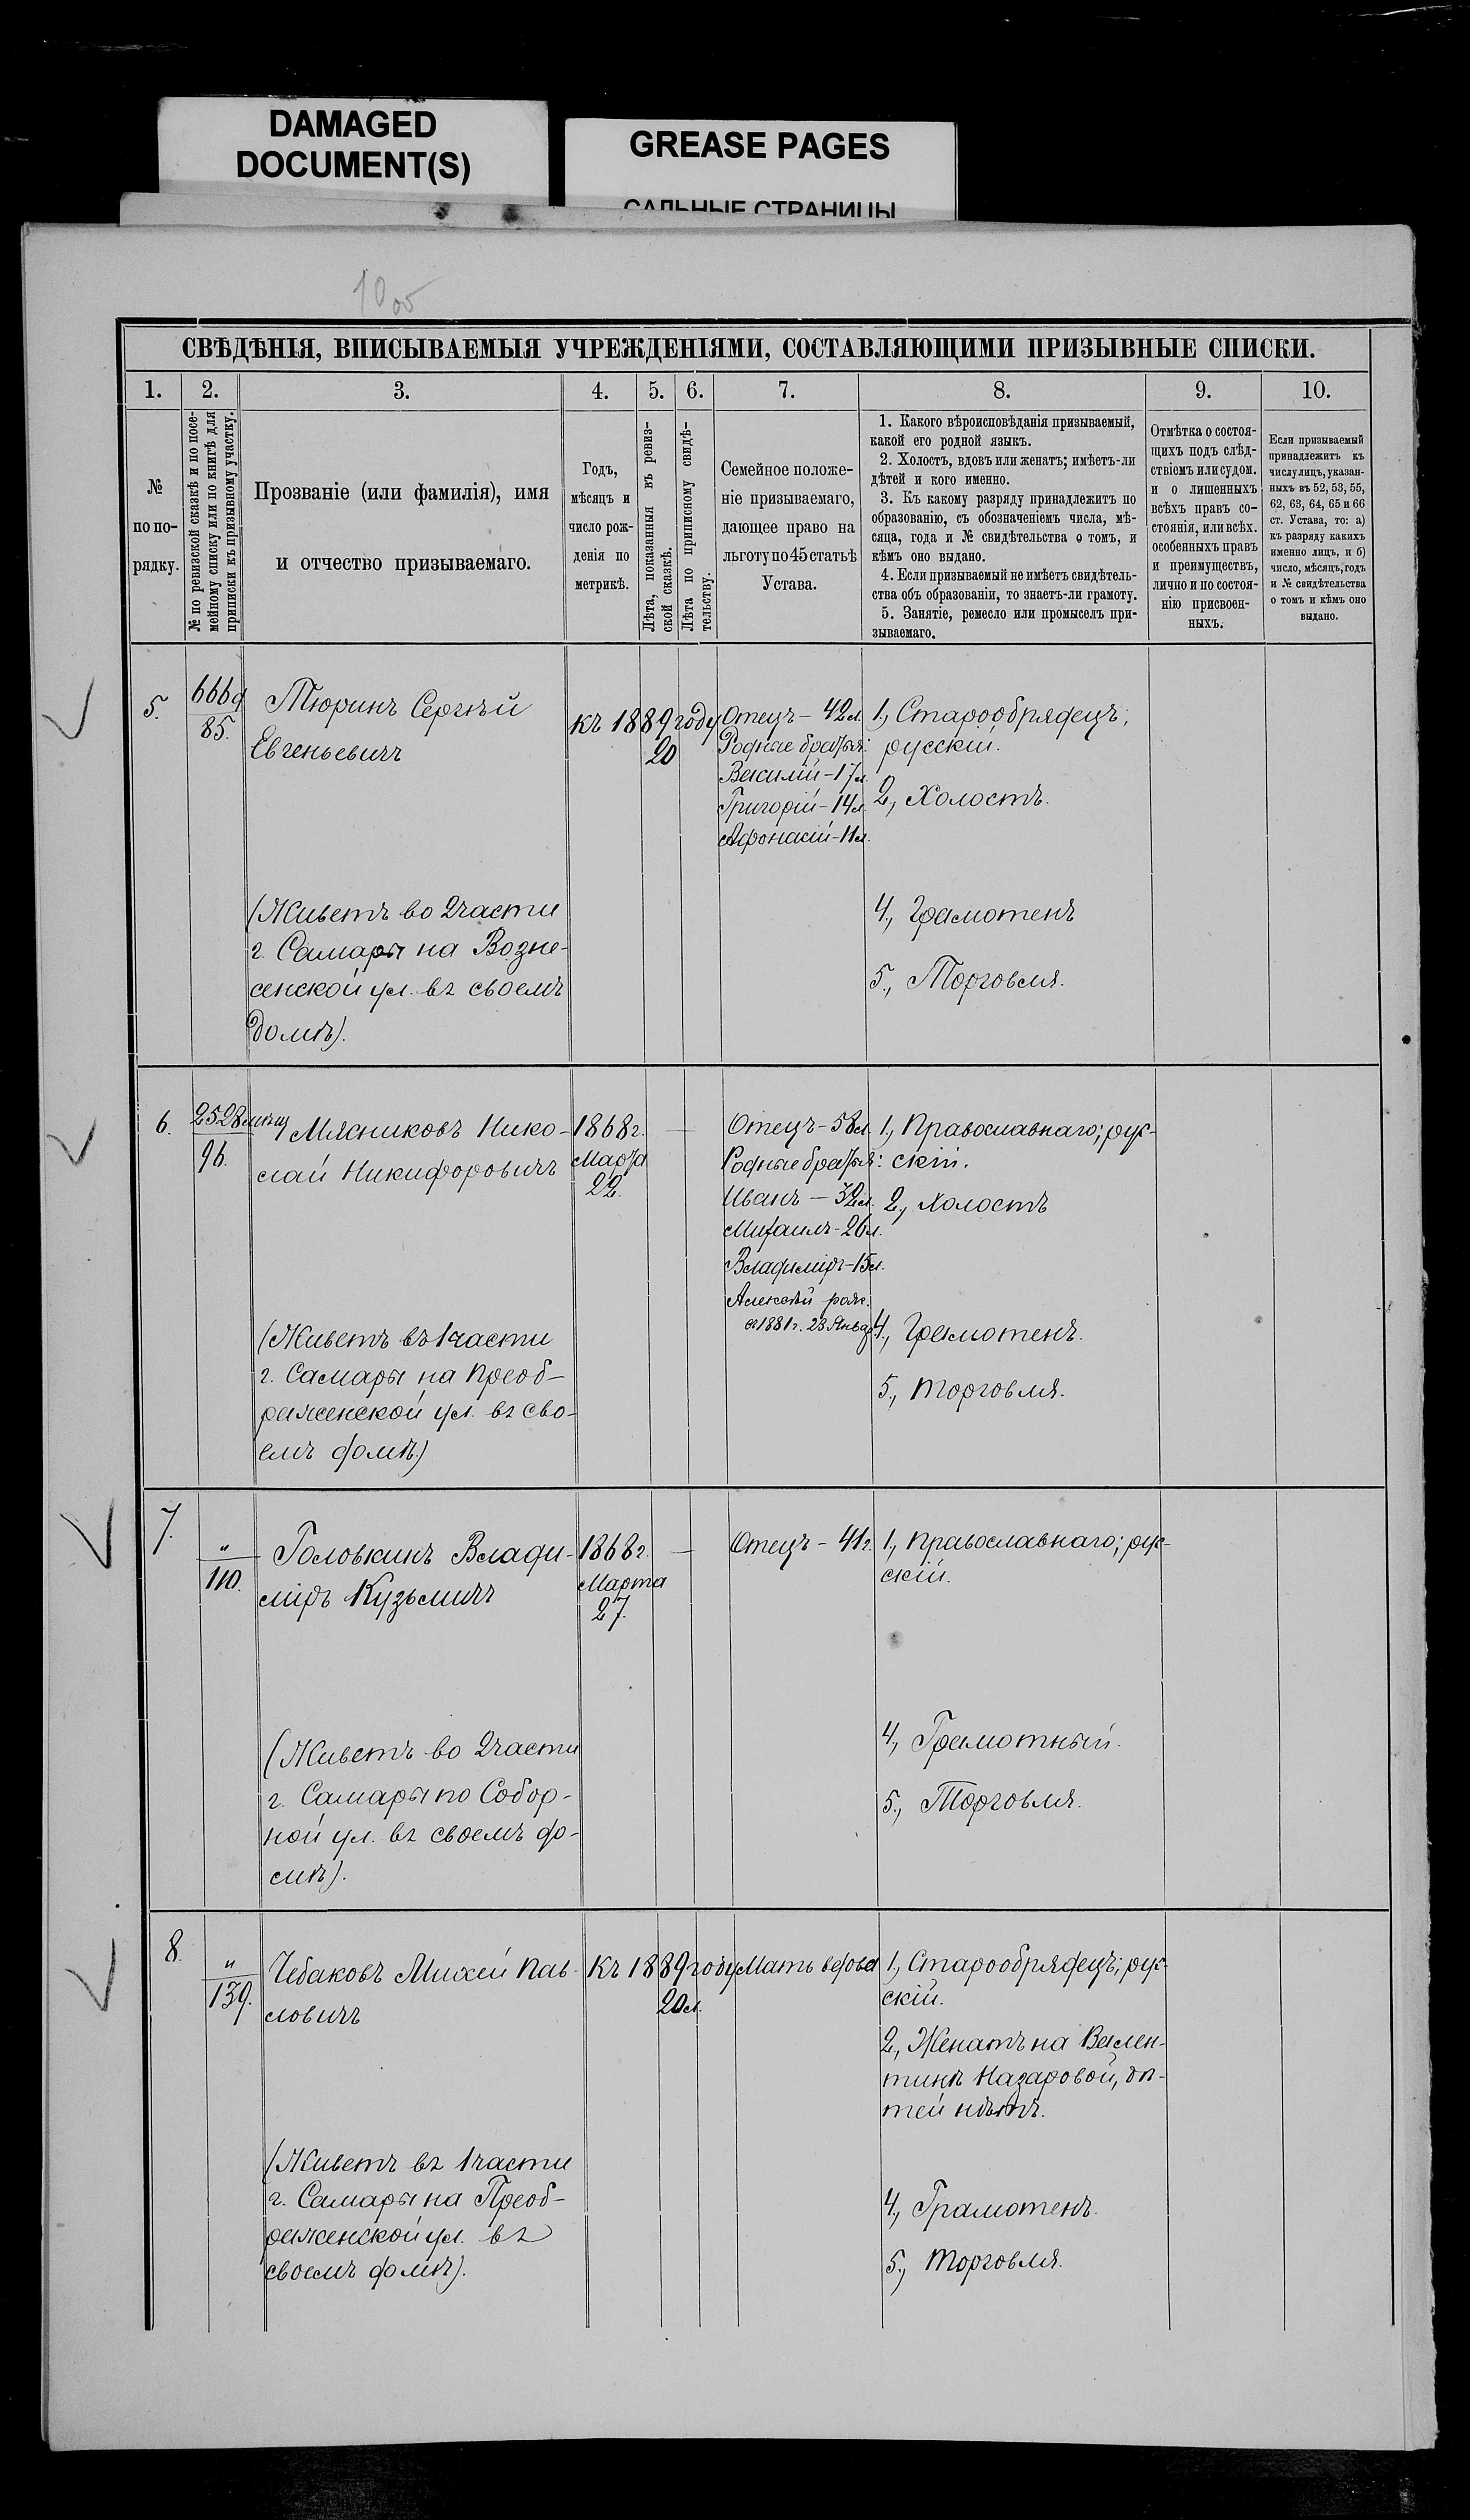 DAMAGED
DOCUMENT(S)
GREASE PAGES
САЛЬНЫЕ СТРАНИЦЫ
10 об
СВѢДѢНІЯ, ВПИСЫВАЕМЫЯ УЧРЕЖДЕНІЯМИ, СОСТАВЛЯЮЩИМИ ПРИЗЫВНЫЕ СПИСКИ.
1. 2. 3. 4. 5. 6. 7. 8. 9. 10.
№
по по-
рядку.
№ по ревизской сказкѣ и по посе-
мейному списку или по книгѣ для
приписки къ призывному участку.
Прозваніе (или фамилія), имя
и отчество призываемаго.
Годъ,
мѣсяцъ и
число рож-
денія по
метрикѣ.
Лѣта, показанныя въ ревиз-
ской сказкѣ.
Лѣта по приписному свидѣ-
тельству.
Семейное положе-
ніе призываемаго,
дающее право на
льготу по 45 статьѣ
Устава.
1. Какого вѣроисповѣданія призываемый,
какой его родной языкъ.
2. Холостъ, вдовъ или женатъ; имѣетъ-ли
дѣтей и кого именно.
3. Къ какому разряду принадлежитъ по
образованію, съ обозначеніемъ числа, мѣ-
сяца, года и № свидѣтельства о томъ, и
кѣмъ оно выдано.
4. Если призываемый не имѣетъ свидѣтель-
ства объ образованіи, то знаетъ-ли грамоту.
5. Занятіе, ремесло или промыселъ при-
зываемаго.
Отмѣтка о состоя-
щихъ подъ слѣд-
ствіемъ или судомъ.
и о лишенныхъ
всѣхъ правъ со-
стоянія, или всѣхъ.
особенныхъ правъ
и преимуществъ,
лично и по состоя-
нію присвоен-
ныхъ.
Если призываемый
принадлежитъ къ
числу лицъ, указан-
ныхъ въ 52, 53, 55,
62, 63, 64, 65 и 66
ст. Устава, то: а)
къ разряду какихъ
именно лицъ, и б)
число, мѣсяцъ, годъ
и № свидѣтельства
о томъ и кѣмъ оно
выдано.
5.
85.
Тюринъ Сергѣй
Евгеньевичъ
(Живетъ во 2 части
г. Самары на Возне-
сенской ул. въ своемъ
домѣ).
къ 1889 году
20
Отецъ - 42 л.
Родные братья:
Василій - 17 л.
Григорій - 14 л.
Афонасій - 11 л.
1., Старообрядецъ;
русскій.
2., Холостъ.
4., Грамотенъ
5., Торговля.
6.
2528 мѣщ
96.
Мясниковъ Нико-
лай Никифоровичъ
(Живетъ въ 1 части
г. Самары на Преоб-
раженской ул. въ сво-
емъ домѣ.)
1868 г.
Марта
22.
—
Отецъ - 58 л.
Родные братья:
Иванъ - 32 л.
Михаилъ - 26 л.
Владиміръ - 15 л.
Алексѣй рож.
въ 1881 г. 23 Январ.
1., Православнаго; рус-
скій.
2., Холостъ
4., Грамотенъ.
5., Торговля.
7.
"
110.
Головкинъ Влади-
міръ Кузьмичъ
(Живетъ во 2 части
г. Самары по Собор-
ной ул. въ своемъ до-
мѣ).
1868 г.
Марта
27.
—
Отецъ - 41 г.
1., Православнаго; рус-
скій.
4., Грамотный.
5., Торговля.
8.
"
139.
Чебаковъ Михей Пав-
ловичъ
(Живетъ въ 1 части
г. Самары на Преоб-
раженской ул. въ
своемъ домѣ).
Къ 1889 году
20 л.
Мать вдова
1., Старообрядецъ; рус-
скій.
2., Женатъ на Вален-
тинѣ Назаровой, дѣ-
тей нѣтъ.
4., Грамотенъ.
5., Торговля.